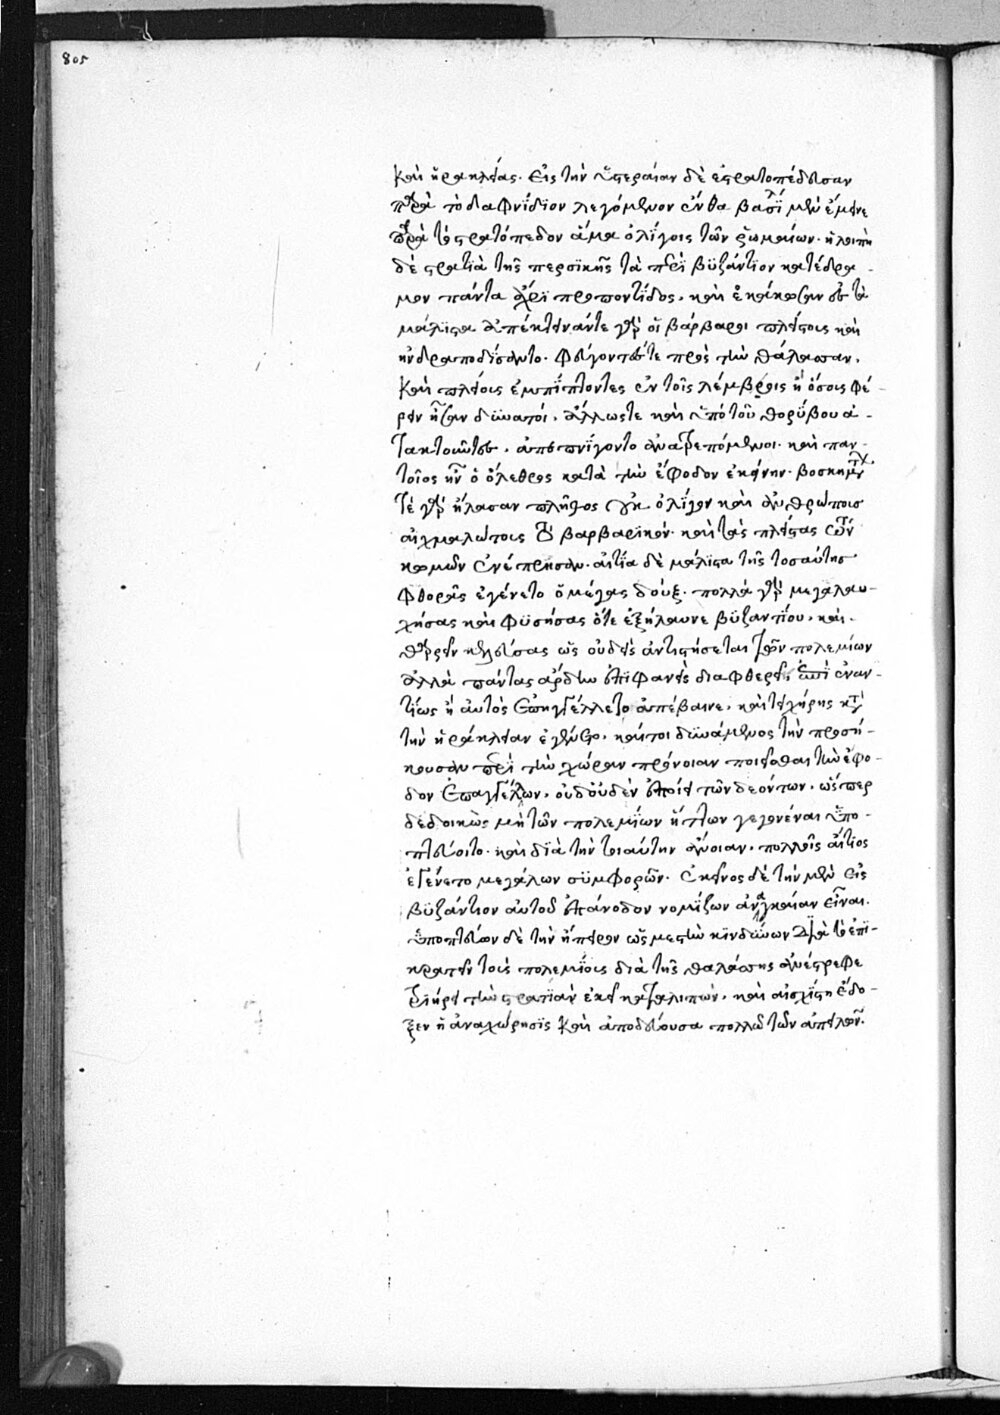 805
καὶ ἡρακλείας. εἰς τὴν ὑστεραίαν δὲ ἐστρατοπέδευσαν
παρὰ τὸ δαφνίδιον λεγόμενον ἔνθα βασιλ μὲν ἔμεινε
παρὰ τὸ στρατόπεδον ἅμα ὀλίγοις τῶν ῥωμαίων. ἡ λοιπὴ
δὲ στρατιὰ τῆς περσικῆς τὰ περὶ βυζάντιον κατέδρα-
μον πάντα ἄχρι προποντίδος. καὶ ἐκάκωσαν ὅτι τὰ
μάλιστα ἀπέκτειναν τε γὰρ οἱ βάρβαροι πλείστους καὶ
ἠνδραποδίσαντο. φεύγοντές τε πρὸς τὴν θάλασσαν.
καὶ πλείους ἐμπίπτοντες ἐν τοῖς λέμβοις ἢ ὅσους φέ-
ρειν ἦσαν δυνατοί. ἄλλως τε καὶ ὑπὸ τοῦ θορύβου ἀ-
τακτοῦντες. ἀπεπνίγοντο ἀνατρεπόμενοι. καὶ παν-
τοῖος ἦν ὁ ὄλεθρος κατὰ τὴν ἔφοδον ἐκείνην. βοσκημάτων
τε γὰρ ἤλασαν πλῆθος οὐκ ὀλίγον καὶ ἀνθρώποις
αἰχμαλώτοις τὸ βαρβαρικόν. καὶ τὰς πλείστας τῶν
κωμῶν ἐνέπρησαν. αἰτία δὲ μάλιστα τῆς τοσαύτης
φθορᾶς ἐγένετο ὁ μέγας δούξ. πολλὰ γὰρ μεγαλαυ-
χήσας καὶ φυσήσας ὅτε ἐξήλαυνε βυζαντίου. καὶ
θαρρεῖν κελεύσας ὡς οὐδεὶς ἀντιστήσεται τῶν πολεμίων
ἀλλὰ πάντας ἄρδην ἐπιφανεὶς διαφθερεῖ, ἐπεὶ ἐναν-
τίως ἢ αὐτὸς ἐπηγγέλλετο ἀπέβαινε. καὶ τειχήρης κατὰ
τὴν ἡράκλειαν ἐγένετο. καίτοι δυνάμενος τὴν προσή-
κουσαν περὶ τὴν χώραν πρόνοιαν ποιεῖσθαι τὴν ἔφο-
δον ἐπαγγέλλων. οὐδ' οὐδὲν ἐποίει τῶν δεόντων. ὥσπερ
δεδοικὼς μὴ τῶν πολεμίων ἥττων γεγονέναι ὑπο-
πτεύοιτο. καὶ διὰ τὴν τοιαύτην ἄνοιαν. πολλοῖς αἴτιος
ἐγένετο μεγάλων συμφορῶν. ἐκεῖνος δὲ τὴν μὲν εἰς
βυζάντιον αὐτοῦ ἐπάνοδον νομίζων ἀναγκαίαν εἶναι.
ὑποπτεύων δὲ τὴν ἤπειρον ὡς μεστὴν κινδύνων διὰ τὸ ἐπι-
κρατεῖν τοὺς πολεμίους διὰ τῆς θαλάσσης ἀνέστρεφε
τριήρει τὴν στρατιὰν ἐκεῖ καταλιπών. καὶ αἰσχίστη ἔδο-
ξεν ἡ ἀναχώρησις καὶ ἀποδέουσα πολλῶ τῶν ἀπειλῶν.